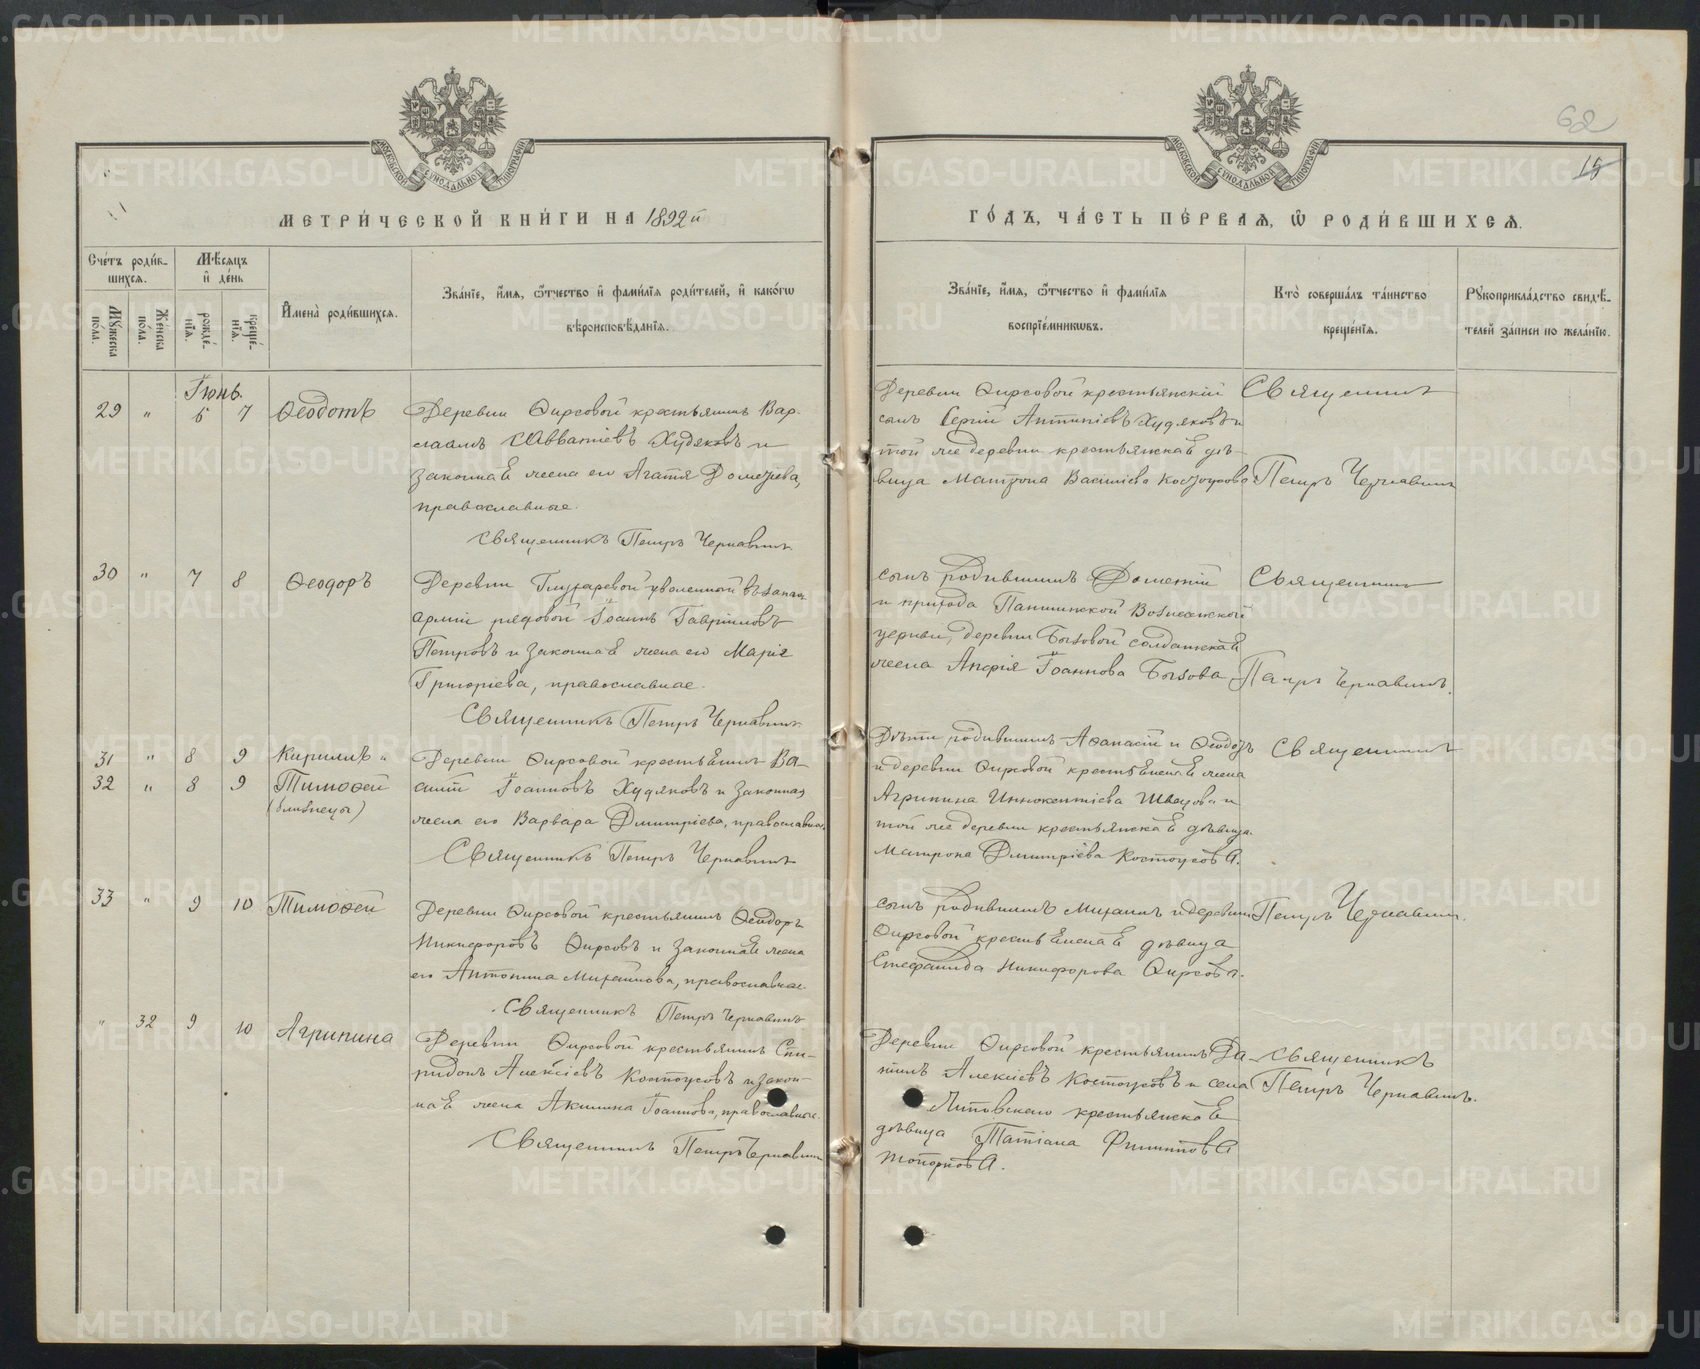 62
15
МОСКОВСКОЙ СѴНОДАЛЬНОЙ ТИПОГРАФІИ
МОСКОВСКОЙ СѴНОДАЛЬНОЙ ТИПОГРАФІИ
МЕТРИ́ЧЕСКОЙ КНИ́ГИ НА 1892й
ГО́ДЪ, ЧА́СТЬ ПЕ́РВАѦ, Ѡ҆ РОДИ́ВШИХСѦ.
Сче́тъ роди́в-
шихсѧ.
Мꙋ́жеска по́ла.
Же́нска по́ла.
Мѣ́сѧцъ и҆ де́нь
рожде́-нїѧ.
креще́-нїѧ.
И҆мена̀ роди́вшихсѧ.
Зва́нїе, и҆́мѧ, ѻ҆́тчество и҆ фами́лїѧ роди́телей, и҆ како́гѡ
вѣроисповѣ́данїѧ.
Зва́нїе, и҆́мѧ, ѻ҆́тчество и҆ фами́лїѧ
воспрїе́мникѡвъ.
Кто̀ соверша́лъ та́инство
креще́нїѧ.
Рꙋкоприкла́дство свидѣ́-
телей за́писи по жела́нїю.
Іюнь.
29 " 6 7 Ѳеодотъ
Деревни Ѳирсовой крестьянинъ Вар-
лаамъ Савватіевъ Худяковъ и
законная жена его Агаѳія Дометіева,
православные.
Священникъ Петръ Чернавинъ
Деревни Ѳирсовой крестьянскій
сынъ Сергій Антипіевъ Худяковъ и
той же деревни крестьянская дѣ-
вица Матрона Васильева Костоусова.
Священникъ
Петръ Чернавинъ
30 " 7 8 Ѳеодоръ
Деревни Глухаревой уволенной въ запасъ
арміи рядовой Іоаннъ Гавриловъ
Петровъ и законная жена его Марія
Григоріева, православные.
Священникъ Петръ Чернавинъ
сынъ родившихъ Дометій
и прихода Паншинской Вознесенской
церкви, деревни Бызовой солдатская
жена Анфія Іоаннова Бызова.
Священникъ
Петръ Чернавинъ.
31 " 8 9 Кириллъ "
32 " 8 9 Тимоѳей
(близнецы)
Деревни Ѳирсовой крестьянинъ Ва-
силій Іоанновъ Худяковъ и законная
жена его Варвара Димитріева, православные.
Священникъ Петръ Чернавинъ
Дѣти родившихъ Аѳанасій и Ѳеодоръ
и деревни Ѳирсовой крестьянская жена
Агрипина Иннокентіева Швецова и
той же деревни крестьянская дѣвица
Матрона Димитріева Костоусова.
Священникъ
Петръ Чернавинъ.
33 " 9 10 Тимоѳей
Деревни Ѳирсовой крестьянинъ Ѳеодоръ
Никифоровъ Ѳирсовъ и законная жена
его Антонина Михаилова, православные.
Священникъ Петръ Чернавинъ
сынъ родившихъ Михаилъ и деревни
Ѳирсовой крестьянская дѣвица
Стефанида Никифорова Ѳирсова.
" 32 9 10 Агрипина
Деревни Ѳирсовой крестьянинъ Спи-
ридонъ Алексіевъ Костоусовъ и закон-
ная жена Акилина Іоаннова, православные.
Священникъ Петръ Чернавинъ
Деревни Ѳирсовой крестьянинъ Да-
ніилъ Алексіевъ Костоусовъ и села
Липовскаго крестьянская
дѣвица Татіана Филиппова
Топоркова.
Священникъ
Петръ Чернавинъ.
METRIKI.GASO-URAL.RU